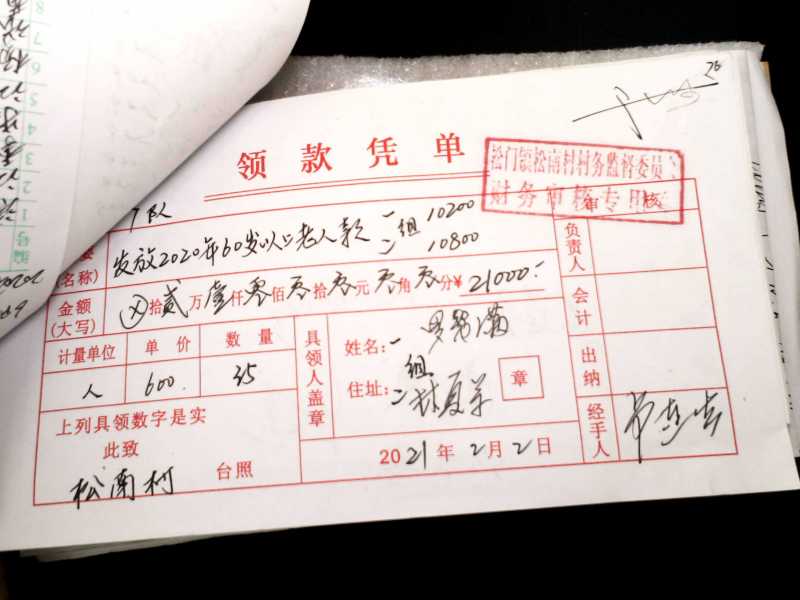 26
领款凭单
松门镇松南村村务监督委员
财务审核专用
审核
7队
要
(名称)
发放2020年60岁以上老人款
一组 10200
二 10800
负责人
金额
(大写)
⊗拾贰万壹仟零佰零拾零元零角零分¥21000.-
会计
计量单位 单价 数量
人 600. 35
具领人盖章
姓名:一
组
住址:二 林夏
章
出纳
上列具领数字是实
此致
松南村 台照
2021年2月2日
经手人
编号 1 2 3 4 5 6 7 8